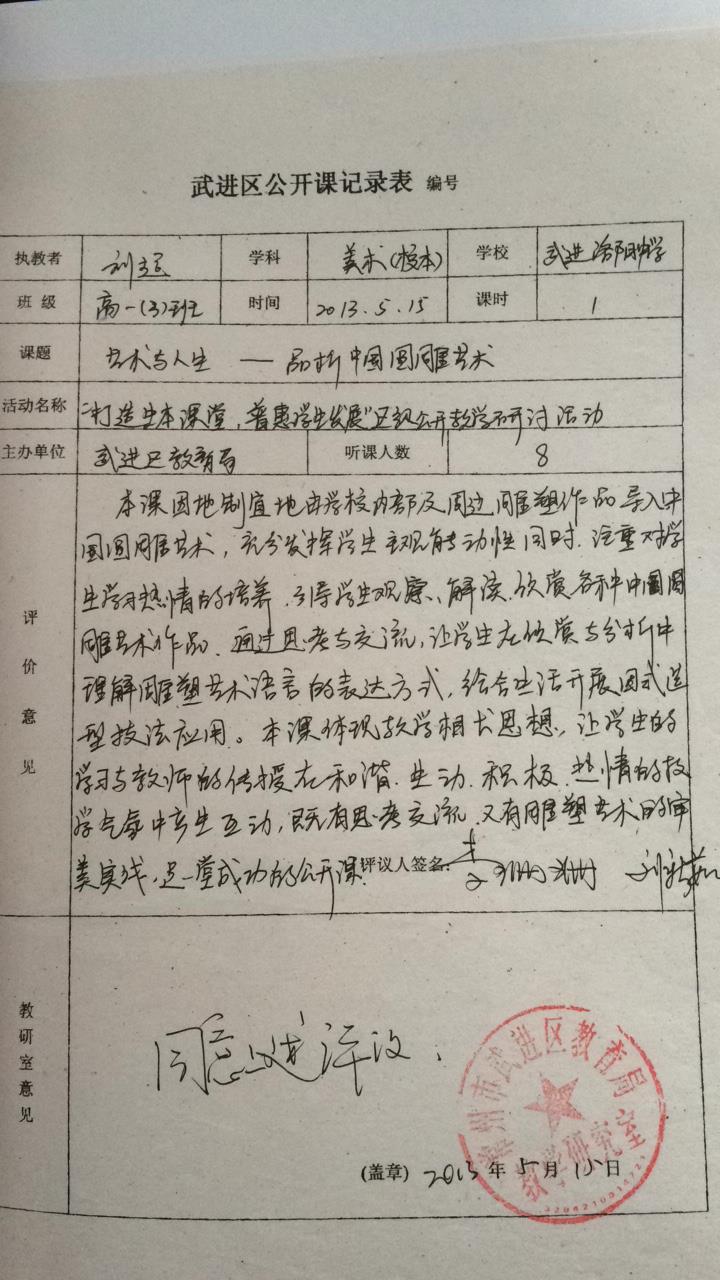 武进区公开课记录表 编号
执教者 刘 学科 美术(校本) 学校 武进洛阳中学
班级 高一(3)班 时间 2013.5.15 课时 1
课题 艺术与人生 — 品析中国圆雕艺术
活动名称 “打造生本课堂,普惠学生发展”区级公开教学研讨活动
主办单位 武进区教育局 听课人数 8
评价意见
本课因地制宜地由学校内部及周边雕塑作品导入中
国圆雕艺术,充分发挥学生主观能动性同时.注重对学
生学习热情的培养.引导学生观察、解读.欣赏各种中国圆
雕艺术作品.通过思考与交流,让学生在欣赏与分析中
理解雕塑艺术语言的表达方式,结合生活开展因式造
型技法应用。本课体现教学相长思想,让学生的
学习与教师的传授在和谐.生动.积极.热情的教
学气氛中产生互动,既有思考交流.又有雕塑艺术的审
美实践,是一堂成功的公开课.评议人签名:
教研室意见
同意上述评议.
常州市武进区教育局
教学研究室
3204210014721
(盖章) 2013年5月15日